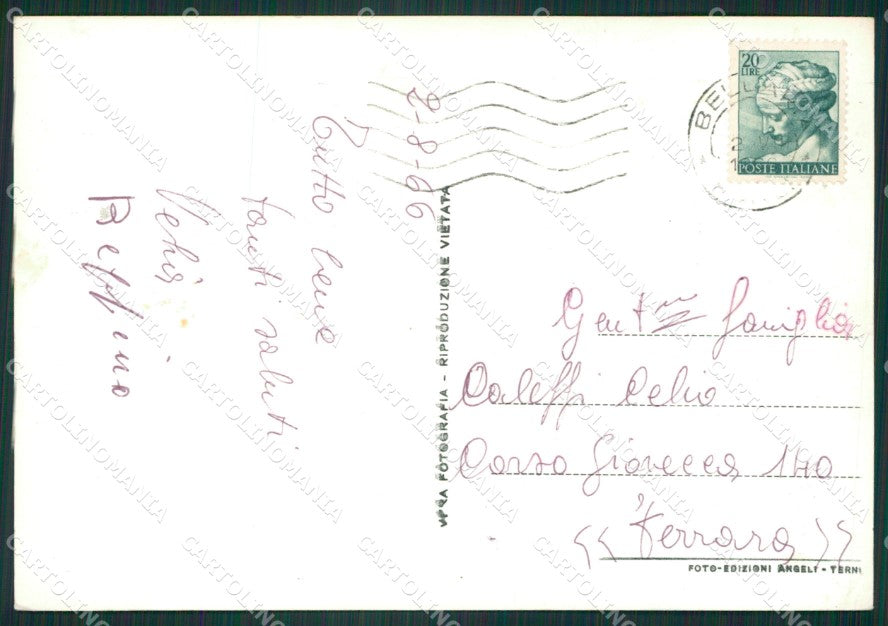 2-8-66
Tutto bene
tanti saluti
Beppino
20
LIRE
POSTE ITALIANE
VERA FOTOGRAFIA - RIPRODUZIONE VIETATA
Gent.ma famiglia
Caleffi Celio
Corso Giovecca 140
"Ferrara"
FOTO-EDIZIONI ANGELI - TERNI
CARTOLINOMANIA